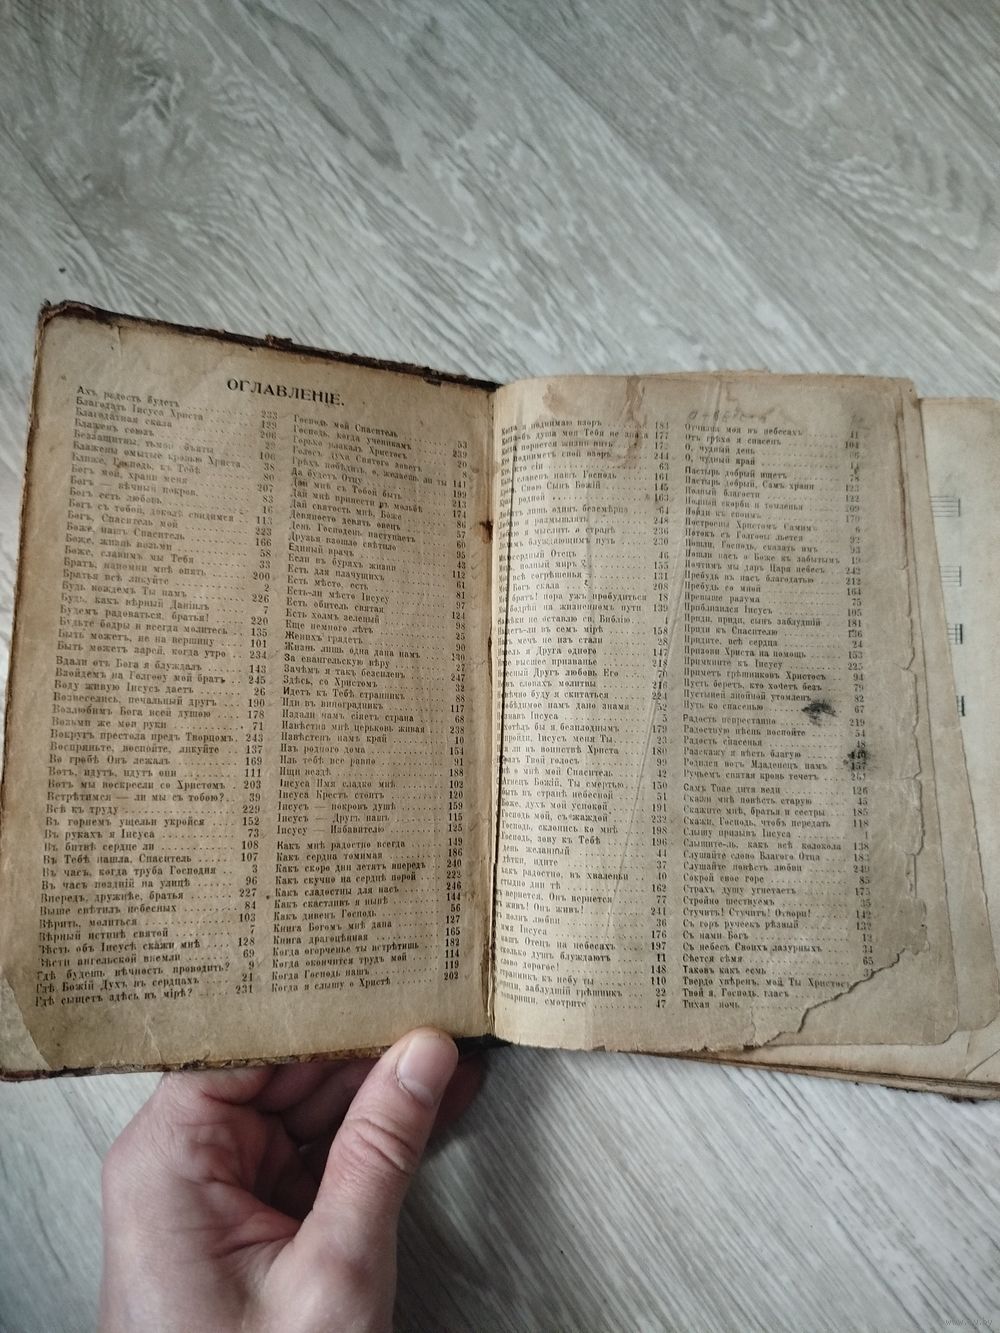 ОГЛАВЛЕНІЕ.
Ахъ, радость будетъ 233
Благодать Іисуса Христа 129
Благодатная сказа 206
Блаженъ союзъ
Беззащитны, тьмой объяты 106
Блажены омытые кровью Христа 38
Ближе, Господь, къ Тебѣ 80
Богъ мой, храни меня 207
Богъ — вѣчный покров. 83
Богъ есть любовь 16
Богъ съ тобой, доколѣ свидимся 113
Богъ, Спаситель мой 223
Боже, нашъ Спаситель 166
Боже, жизнь возьми 58
Боже, славимъ мы Тебя 33
Братъ, напомни мнѣ опять 200
Братья всѣ ликуйте 2
Будь вождемъ Ты намъ 226
Будь, какъ вѣрный Даніилъ 7
Будемъ радоваться, братья! 220
Будьте бодры и всегда молитесь 135
Быть можетъ, не на вершину 101
Быть можетъ зарей, когда утро 234
Вдали отъ Бога я блуждалъ 143
Взойдемъ на Голгоѳу мой братъ 245
Воду живую Іисусъ даетъ 26
Вознеселись, печальный другъ 190
Возлюбимъ Бога всей душою 178
Возьми же мои руки 71
Вокругъ престола предъ Творцомъ 243
Воспряньте, воспойте, ликуйте 137
Во гробѣ Онъ лежалъ 169
Вотъ, идутъ, идутъ они 111
Вотъ мы воскресли со Христомъ 203
Встрѣтимся — ли мы съ тобою? 39
Всѣ къ труду 229
Въ горнемъ ущельи укройся 152
Въ рукахъ я Іисуса 73
Въ битвѣ сердце ли 108
Въ Тебѣ нашла, Спаситель 107
Въ часъ, когда труба Господня 3
Въ часъ поздній на улицѣ 96
Впередъ, дружнѣе, братья 227
Выше свѣтилъ небесныхъ 84
Вѣрить, молиться 103
Вѣрный истинѣ святой 7
Вѣсть объ Іисусѣ скажи мнѣ 128
Вѣсти ангельской внемли 69
Гдѣ будешь вѣчность проводить? 9
Гдѣ Божій Духъ въ сердцахъ 21
Гдѣ сыщетъ здѣсь въ мірѣ? 231
Господь мой Спаситель 53
Господь, когда ученикамъ 239
Горько рыдалъ Христосъ 20
Голосъ духа Святого зоветъ 8
Грѣхъ побѣдить, о, желаешь ли ты 141
Да будетъ Отцу 199
Дай мнѣ съ Тобой быть 213
Дай мнѣ принести въ мольбѣ 174
Дай святость мнѣ, Боже 86
Девяносто девять овецъ 57
День Господень наступаетъ 60
Друзья взошло свѣтило 95
Единый врачъ 43
Если въ буряхъ жизни 112
Есть для плачущихъ 61
Есть мѣсто, есть 81
Есть-ли мѣсто Іисусу 97
Есть обитель святая 124
Есть холмъ зеленый 98
Еще немного лѣтъ 25
Женихъ грядетъ 90
Жизнь лишь одна дана намъ 130
За евангельскую вѣру 27
Зачѣмъ я такъ бесиленъ 247
Здѣсь, со Христомъ 32
Идетъ къ Тебѣ странникъ 88
Иди въ виноградникъ 117
Издали намъ сіяетъ страна 68
Извѣстна мнѣ церковь живая 238
Извѣстенъ намъ край 10
Изъ родного дома 154
Иль тебѣ все равно 91
Ищи вездѣ 188
Іисуса Имя сладко мнѣ 102
Іисуса Крестъ стоитъ 120
Іисусъ — покровъ душѣ 159
Іисусъ — Другъ нашъ 115
Іисусу — Избавителю 125
Какъ мнѣ радостно всегда 149
Какъ сердца томимая 186
Какъ скоро дни летятъ впередъ 240
Какъ скучно на сердцѣ порой 222
Какъ сладостны для насъ 246
Какъ скастливъ я нынѣ 144
Какъ дивенъ Господь 56
Книга Богомъ мнѣ дана 127
Книга драгоцѣнная 165
Когда огорченье ты встрѣтишь 182
Когда окончится трудъ мой 114
Когда Господь нашъ 119
Когда я слышу о Христѣ 202
поднимаю взоръ 181
душа моя Тебя не зна 177
подниметъ свой взоръ 244
сіи 63
славенъ нашъ Господь 161
Свою Сынъ Божій 145
родной 163
лишь одинъ безсмѣрно 64
размышлять 248
мыслить о страдѣ 236
блуждающимъ путь 230
Отецъ 46
полный миръ 155
всѣ согрѣшенья 131
Богъ скала 208
братъ! пора ужъ пробудиться 18
бодрый на жизненномъ пути 139
не оставлю си, Библію 4
въ семъ мірѣ 158
мечъ не изъ стали 28
я Друга одного 147
высшее призванье 218
Другъ любовь Его 70
словомъ молитвы 216
буду я скитаться 224
намъ дано знамя 52
Іисуса 5
бы я безплоднымъ 179
Іисусъ меня Ты 23
ли въ воинствѣ Христа 180
Твой голосъ 99
о мнѣ мой Спаситель 42
Божій, Ты смертью 150
быть въ странѣ небесной 51
Боже, духъ мой успокой 191
Господь мой, съ жаждой 232
Господь, склонись ко мнѣ 198
Господь, зову къ Тебѣ 196
день желанный 44
дѣтки, идите 37
радостно, въ хваленьи 40
дни тѣ 162
вернется, Онъ вернется 77
живъ! Онъ живъ! 241
полнъ любви 36
имя Іисуса 176
нашъ Отецъ на небесахъ 197
сколько душъ блуждаютъ 11
слово дорогое! 148
странникъ къ небу ты 110
заблудшій грѣшникъ 22
смотрите 47
Отчизна моя въ небесахъ 11
Отъ грѣха я спасенъ 104
О, чудный день
О, чудный край
Пастырь добрый ищетъ 78
Пастырь добрый, Самъ храни 123
Полный благости 122
Полный скорби и томленья 109
Пойди къ своимъ 170
Построены Христомъ Самимъ 6
Потокъ съ Голгоѳы льется 92
Пошли, Господь, сказать имъ 93
Пошли насъ о Боже къ забытымъ 19
Почтимъ мы даръ Царя небесъ 242
Пребудь въ насъ благодатью 212
Пребудь со мной 164
Превыше разума 75
Приблизился Іисусъ 105
Приди, приди, сынъ заблудшій 181
Приди къ Спасителю 136
Придите, всѣ сердца 24
Призови Христа на помощь 153
Примкните къ Іисусу 225
Приметъ грѣшниковъ Христосъ 94
Пусть беретъ, кто хочетъ безъ 79
Пустыней знойной утомленъ 82
Путь ко спасенью 67
Радость непрестанно 219
Радостную пѣснь воспойте 54
Радость спасенья 48
Разскажу я вѣсть благую
Родился вотъ Младенецъ намъ 157
Ручьемъ святая кровь течетъ
Самъ Твое дитя веди 126
Скажи мнѣ повѣсть старую 45
Скажите мнѣ, братья и сестры 185
Скажи, Господь, чтобъ передать 118
Слышу призывъ Іисуса 1
Слышите-ль, какъ всѣ колокола 138
Слушайте слово Благого Отца 183
Слушайте повѣсть любви 249
Сокрой свое горе 85
Страхъ душу угнетаетъ 175
Стройно шествуемъ 35
Стучитъ! Стучитъ! Отвори! 142
Съ горъ ручеекъ рѣзвый 132
Съ нами Богъ 12
Съ небесъ Своихъ лазурныхъ 34
Сѣется сѣмя 65
Таковъ какъ есмь
Твердо увѣренъ, мой Ты Христосъ
Твой я, Господь, гласъ
Тихая ночь